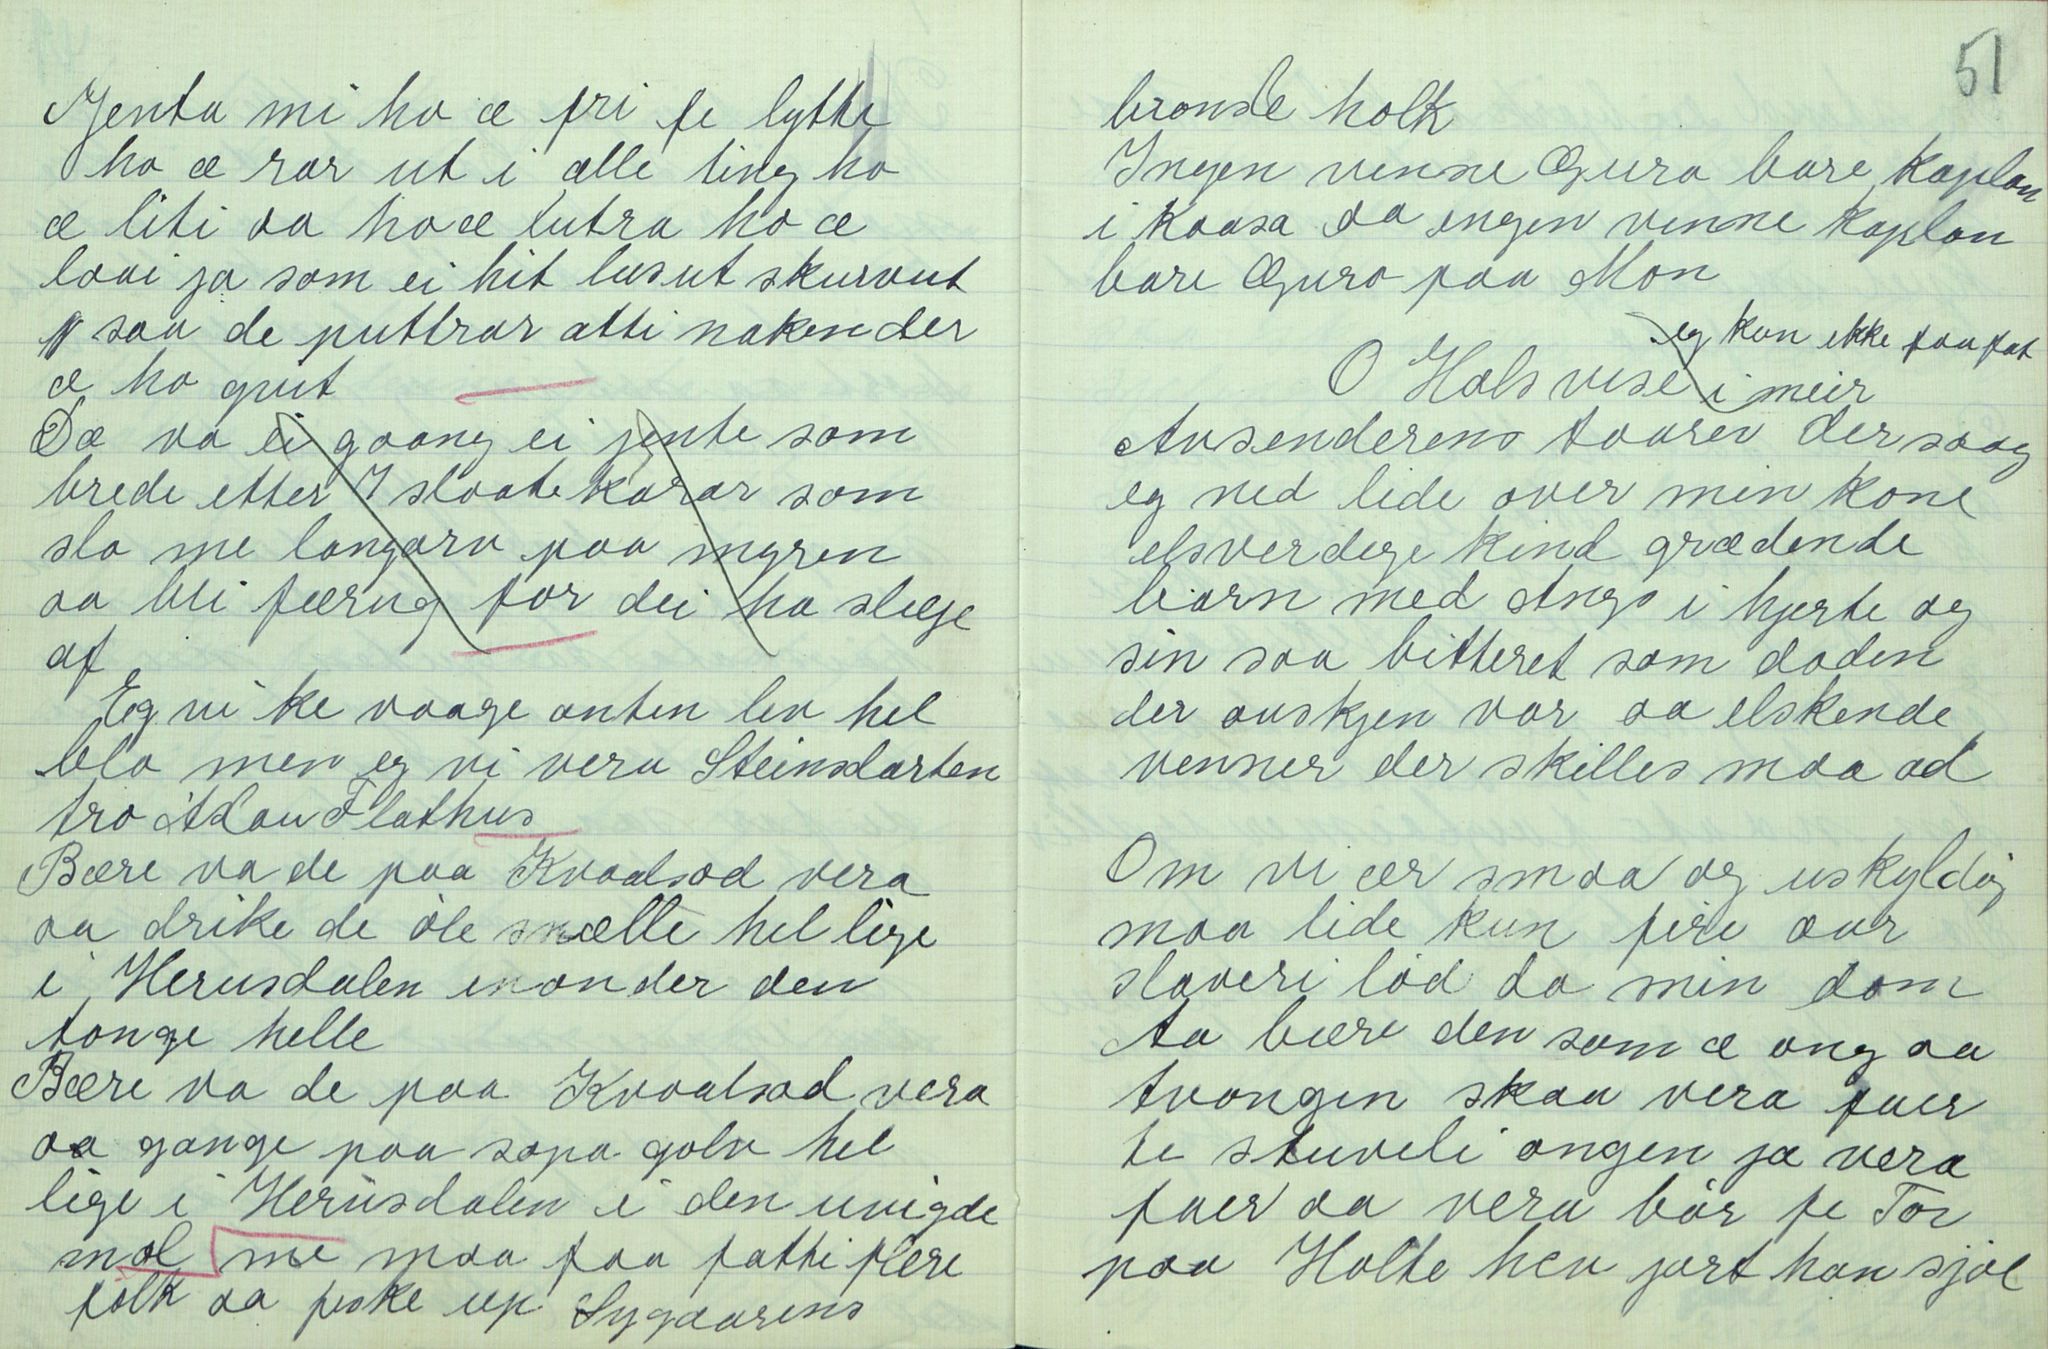 Jenta mi ho æ fri fe lytte
ho æ rar ut i alle ting ho
æ liti aa ho æ lutra ho æ
lovi ja som ei hit lusut skurvut
saa de puttrar atti naken der
æ ho grut
Dæ va ei gaang ei jente som
brede etter 7 slaatekarar som
slo me langorv paa myren
aa bli færug for dei ha slæge
af
Eg vi ke vaage anten lev hel
blo men eg vi vera Steinsdarten
tro Flathus
Bære va de paa Kvaalsod vera
aa drike de öle snælle hel lige
i Herusdalen inonder den
tonge helle
Bære va de paa Kvaalsod vera
aa gange paa sopa golv hel
lige i Herusdalen i den uvigde
mol me maa faa fatti flere
folk aa fiske up Sygaarens
51
bronse holk
Ingen venne Guro bare kaplan
i Kaasa aa ingen venne kaplan
bare Guro paa Mon
eg kan ikke faa fat
O Hals vise i meir
Avsenderens taarer der saag
eg ned lide over min kone
elsverdige kind grædende
barn med Angs i hjerte og
sin saa bitteret som doden
der avskjen var aa elskende
venner der skilles maa ad
Om vi ær smaa og uskyldig
maa lide kun fire aar
slaveri löd da min dom
Aa bære den som æ ong aa
tvongen skaa vera faer
te stuveli ongen ja vera
faer aa vera bår fe Tor
paa Holte hev jort han sjøl